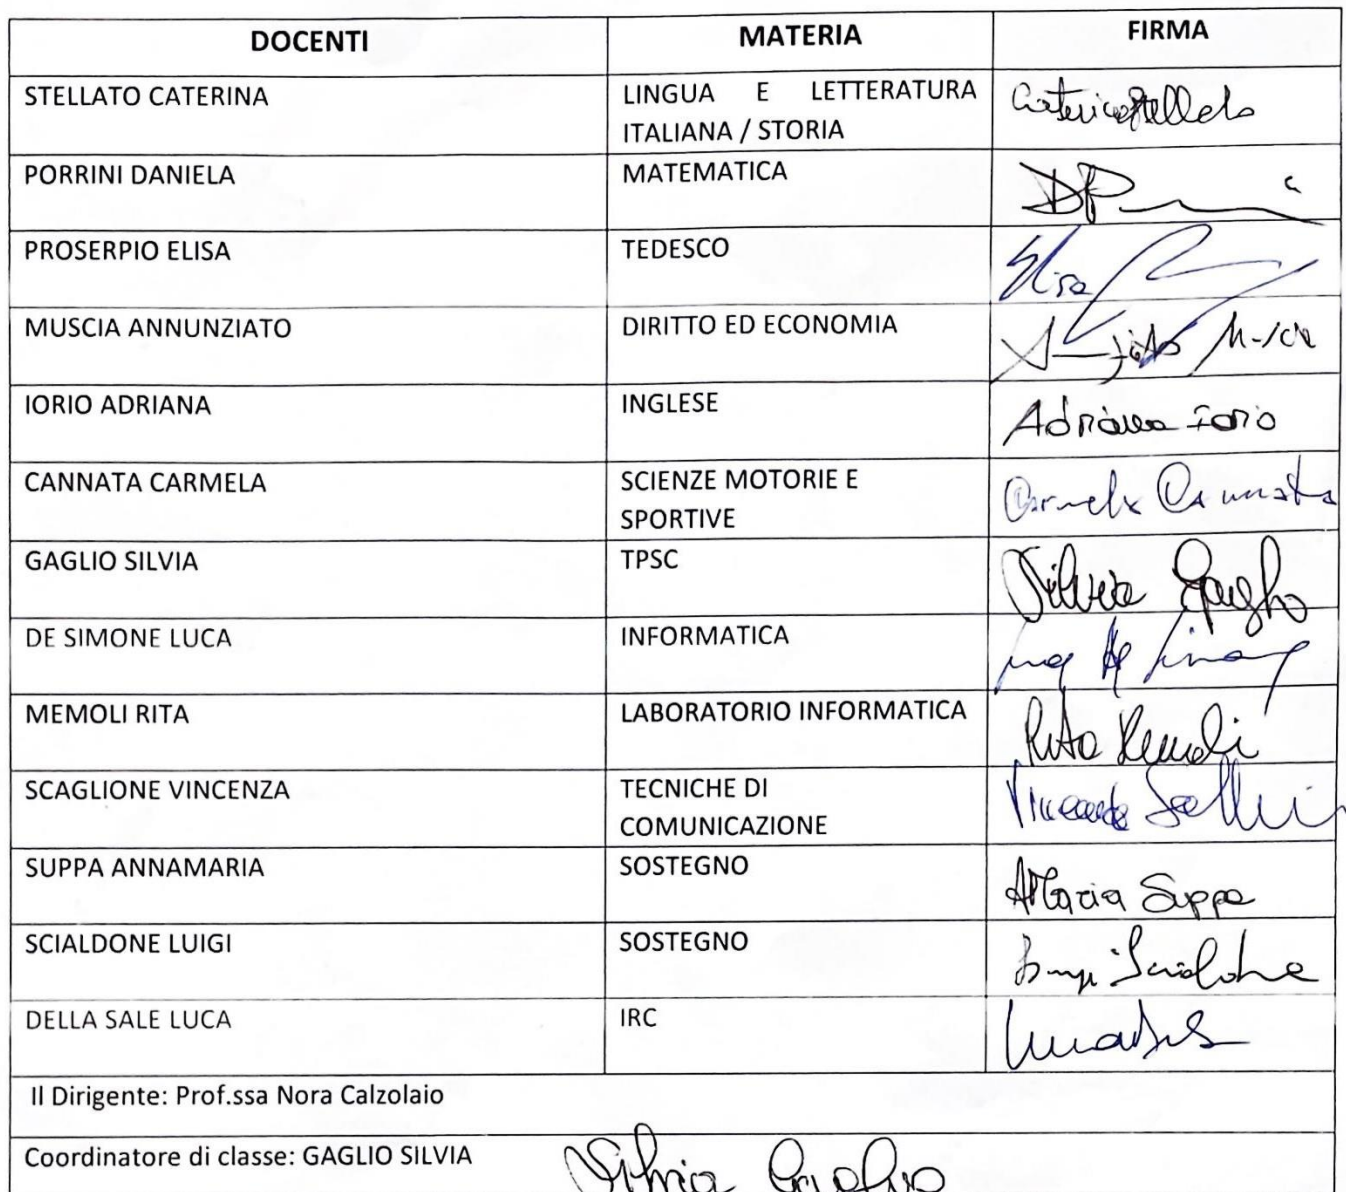 DOCENTI MATERIA FIRMA
STELLATO CATERINA LINGUA E LETTERATURA Caterina Stellato
ITALIANA / STORIA
PORRINI DANIELA MATEMATICA
PROSERPIO ELISA TEDESCO Elisa
MUSCIA ANNUNZIATO DIRITTO ED ECONOMIA
IORIO ADRIANA INGLESE Adriana Iorio
CANNATA CARMELA SCIENZE MOTORIE E Carmela Cannata
SPORTIVE
GAGLIO SILVIA TPSC Silvia Gaglio
DE SIMONE LUCA INFORMATICA
MEMOLI RITA LABORATORIO INFORMATICA Rita Memoli
SCAGLIONE VINCENZA TECNICHE DI Vincenza
COMUNICAZIONE
SUPPA ANNAMARIA SOSTEGNO AMaria Suppa
SCIALDONE LUIGI SOSTEGNO Luigi Scialdone
DELLA SALE LUCA IRC
Il Dirigente: Prof.ssa Nora Calzolaio
Coordinatore di classe: GAGLIO SILVIA Silvia Gaglio